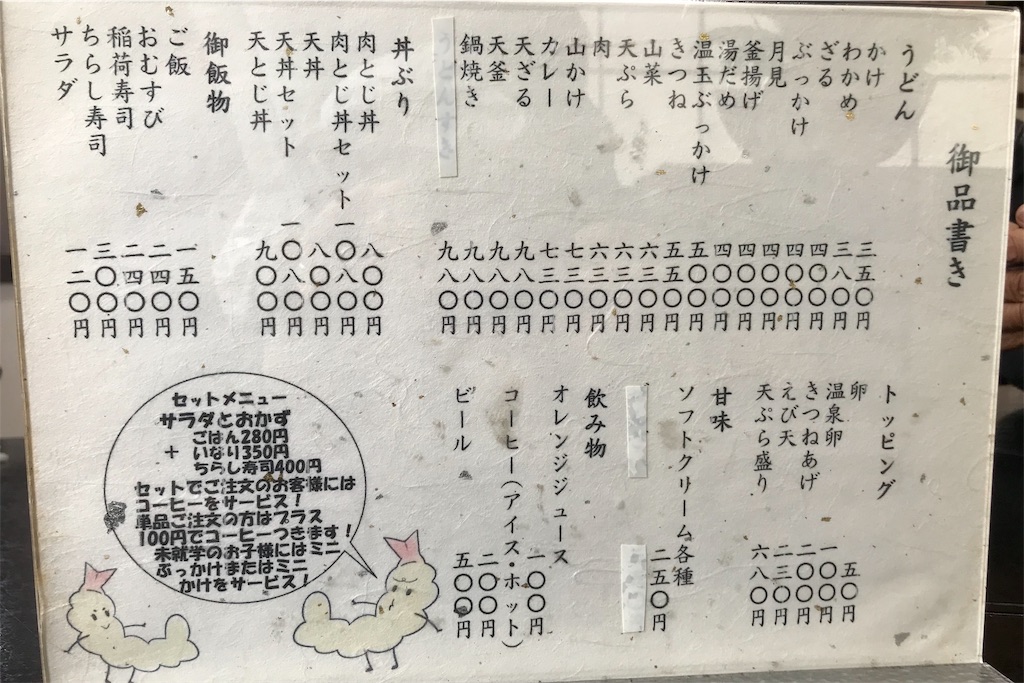 御品書き
うどん
かけ 三五〇円
わかめ 三八〇円
ざる 四〇〇円
ぶっかけ 四〇〇円
月見 四〇〇円
釜揚げ 四〇〇円
湯だめ 四〇〇円
温玉ぶっかけ 五〇〇円
きつね 五五〇円
山菜 六三〇円
天ぷら 六三〇円
肉 六三〇円
山かけ 七三〇円
カレー 七三〇円
天ざる 九八〇円
天釜 九八〇円
鍋焼き 九八〇円
九八〇円
丼ぶり
肉とじ丼 八〇〇円
肉とじ丼セット 一〇八〇円
天丼 八〇〇円
天丼セット 一〇八〇円
天とじ丼 九〇〇円
御飯物
ご飯 一五〇円
おむすび 二四〇円
稲荷寿司 二四〇円
ちらし寿司 三〇〇円
サラダ 一二〇円
トッピング
卵 五〇円
温泉卵 一〇〇円
きつねあげ 二〇〇円
えび天 二三〇円
天ぷら盛り 六八〇円
甘味
ソフトクリーム各種 二五〇円
飲み物
オレンジジュース 一〇〇円
コーヒー(アイス・ホット) 二〇〇円
ビール 五〇〇円
セットメニュー
サラダとおかず
ごはん280円
+ いなり350円
ちらし寿司400円
セットでご注文のお客様には
コーヒーをサービス!
単品ご注文の方はプラス
100円でコーヒーつきます!
未就学のお子様にはミニ
ぶっかけまたはミニ
かけをサービス!